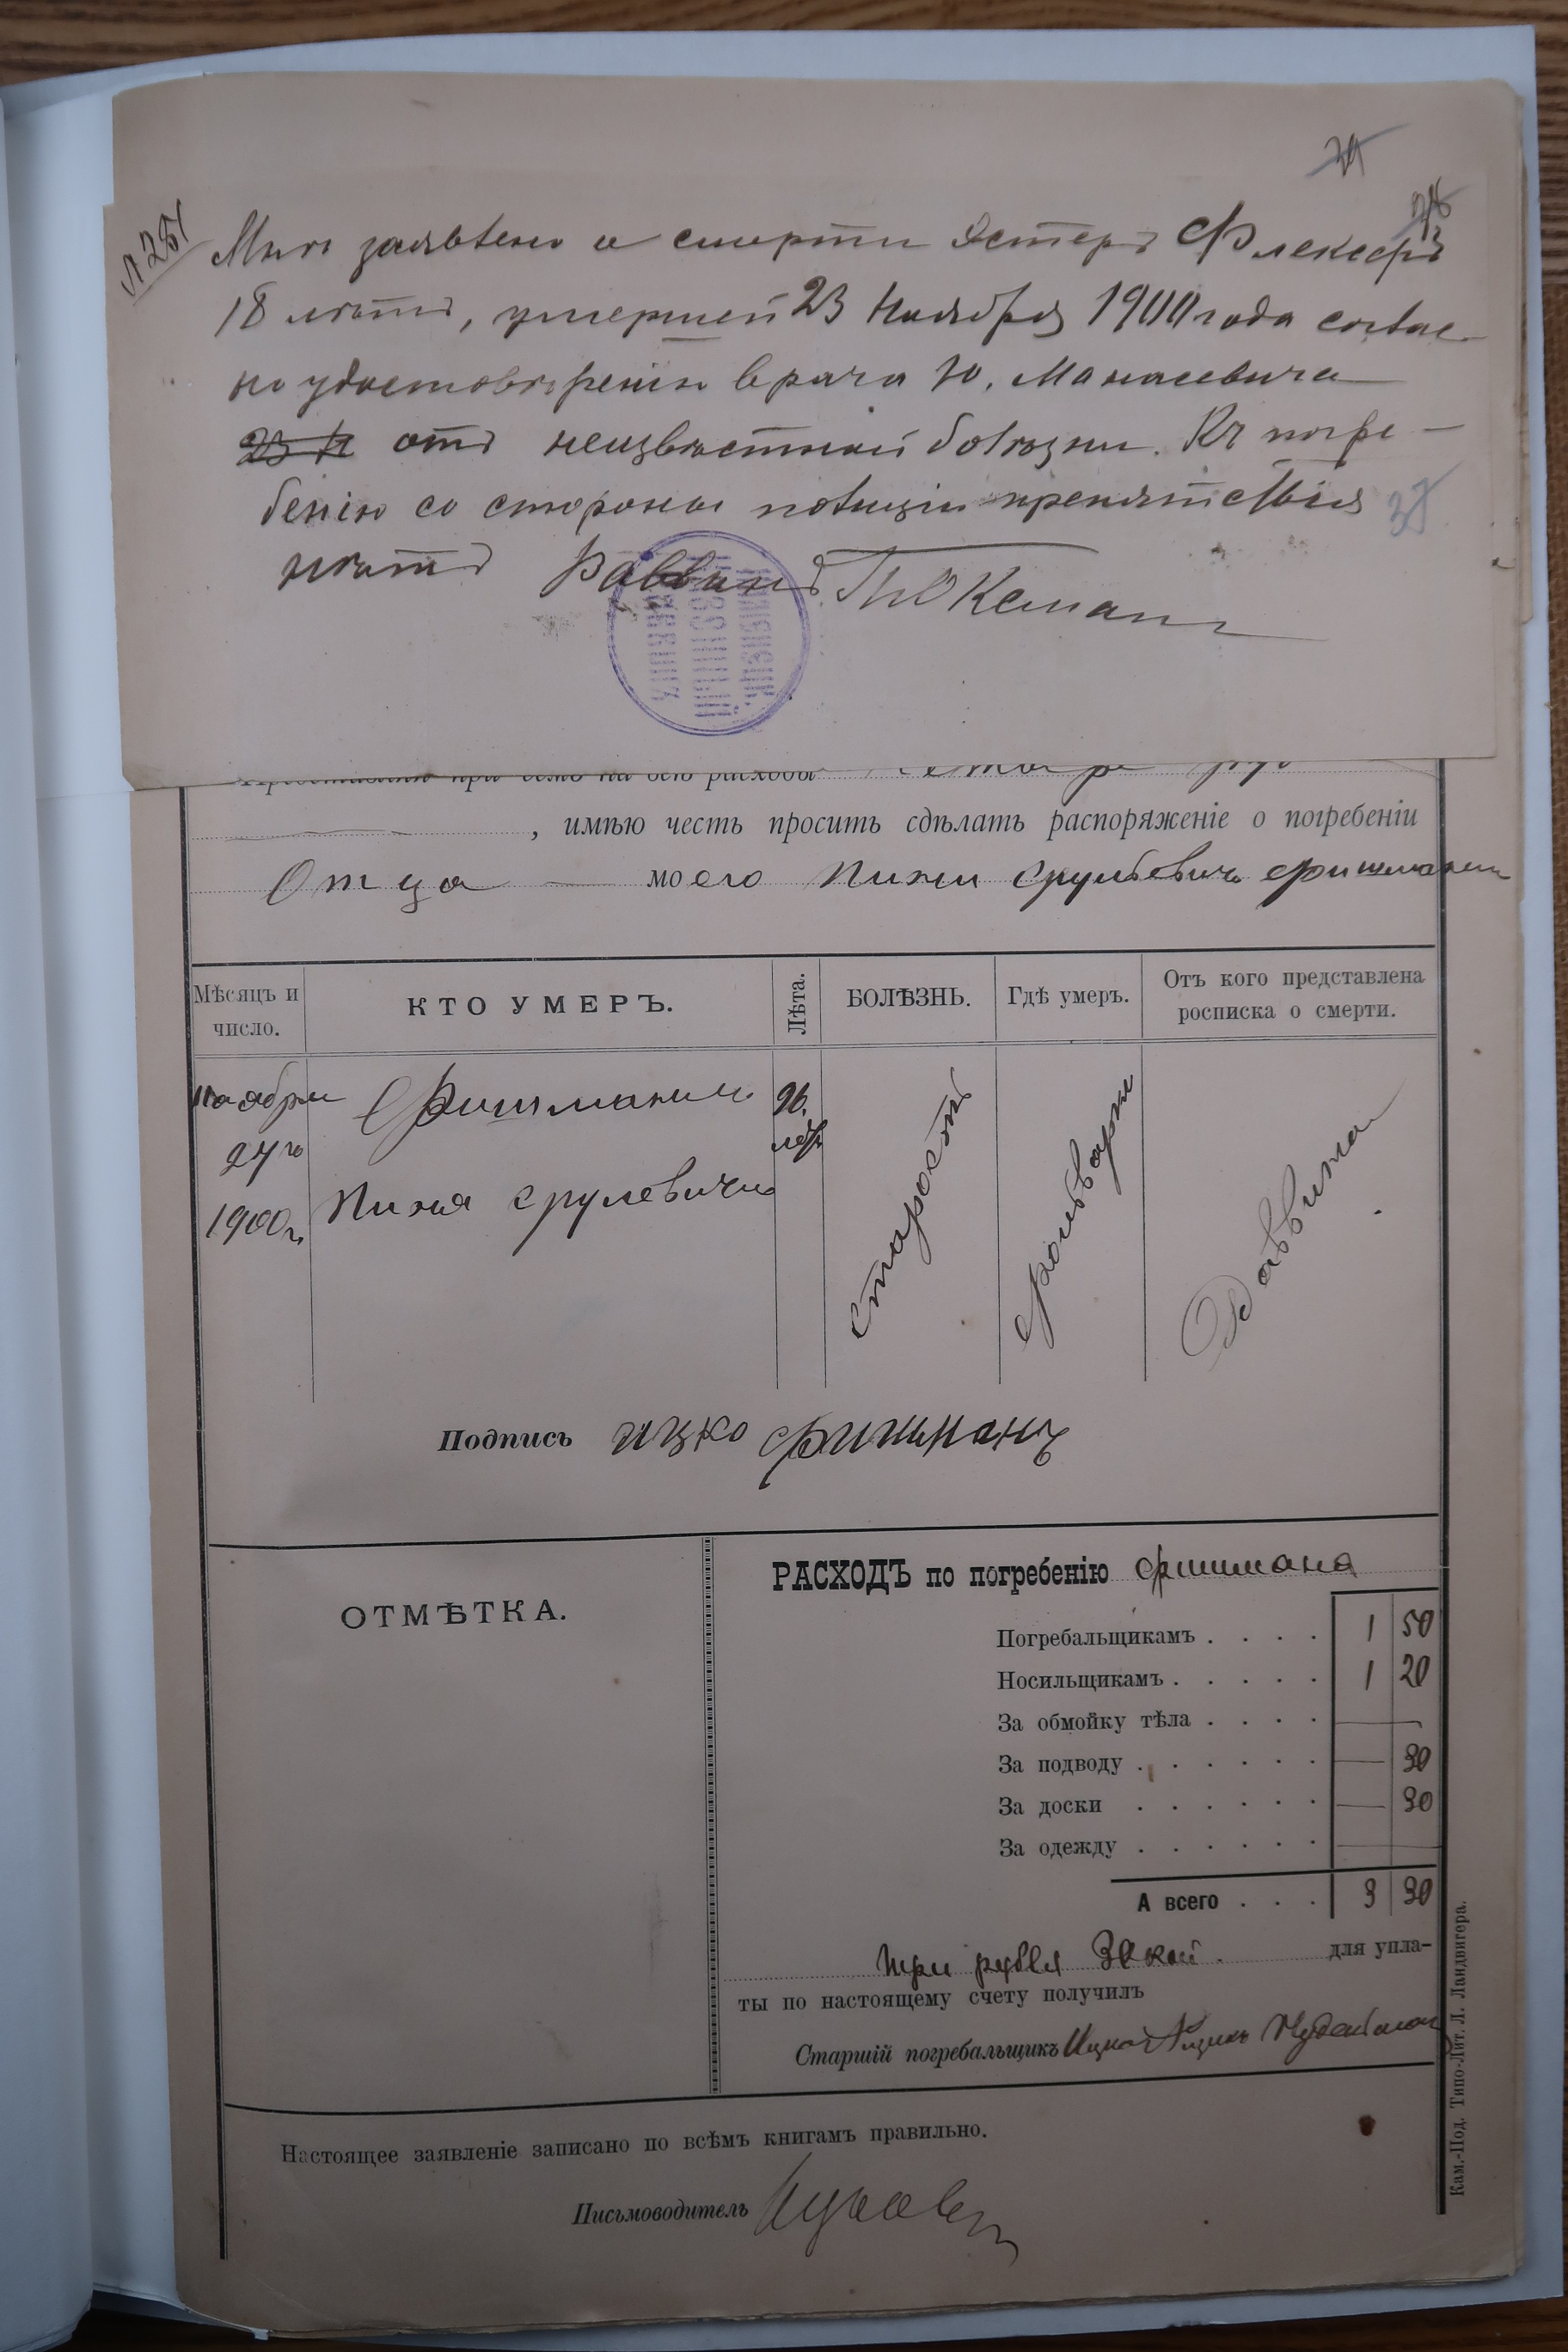 № 281
Мнѣ заявлено о смерти Эстеръ Флексеръ
18 лѣтъ, умершей 23 Ноября 1900 года соглас-
но удостовѣренію врача Ю. Манасевича
отъ неизвѣстной болѣзни. Къ погре-
бенію со стороны полиціи препятствія
нѣтъ Раввинъ
, имѣю честь просить сдѣлать распоряженіе о погребеніи
Отца моего Пинхи Срулевичъ Фишмана
Мѣсяцъ и число. КТО УМЕРЪ. Лѣта. БОЛѢЗНЬ. Гдѣ умеръ. Отъ кого представлена росписка о смерти.
Ноября Фишманъ 90. старость фольварки Раввина
24го лѣт
1900 г. Пинхя Срулевичъ
Подпись Ицко Фишманъ
ОТМѢТКА.
РАСХОДЪ по погребенію Фишмана
Погребальщикамъ . . . . 1 50
Носильщикамъ . . . . . 1 20
За обмойку тѣла . . . . —
За подводу . . . . . . — 30
За доски . . . . . . — 30
За одежду . . . . . .
А всего . . . 3 30
три рубля 30 коп. для упла-
ты по настоящему счету получилъ
Старшій погребальщикъ Ицко
Настоящее заявленіе записано по всѣмъ книгамъ правильно.
Письмоводитель
Кам.-Под. Типо-Лит. Л. Ландвигера.